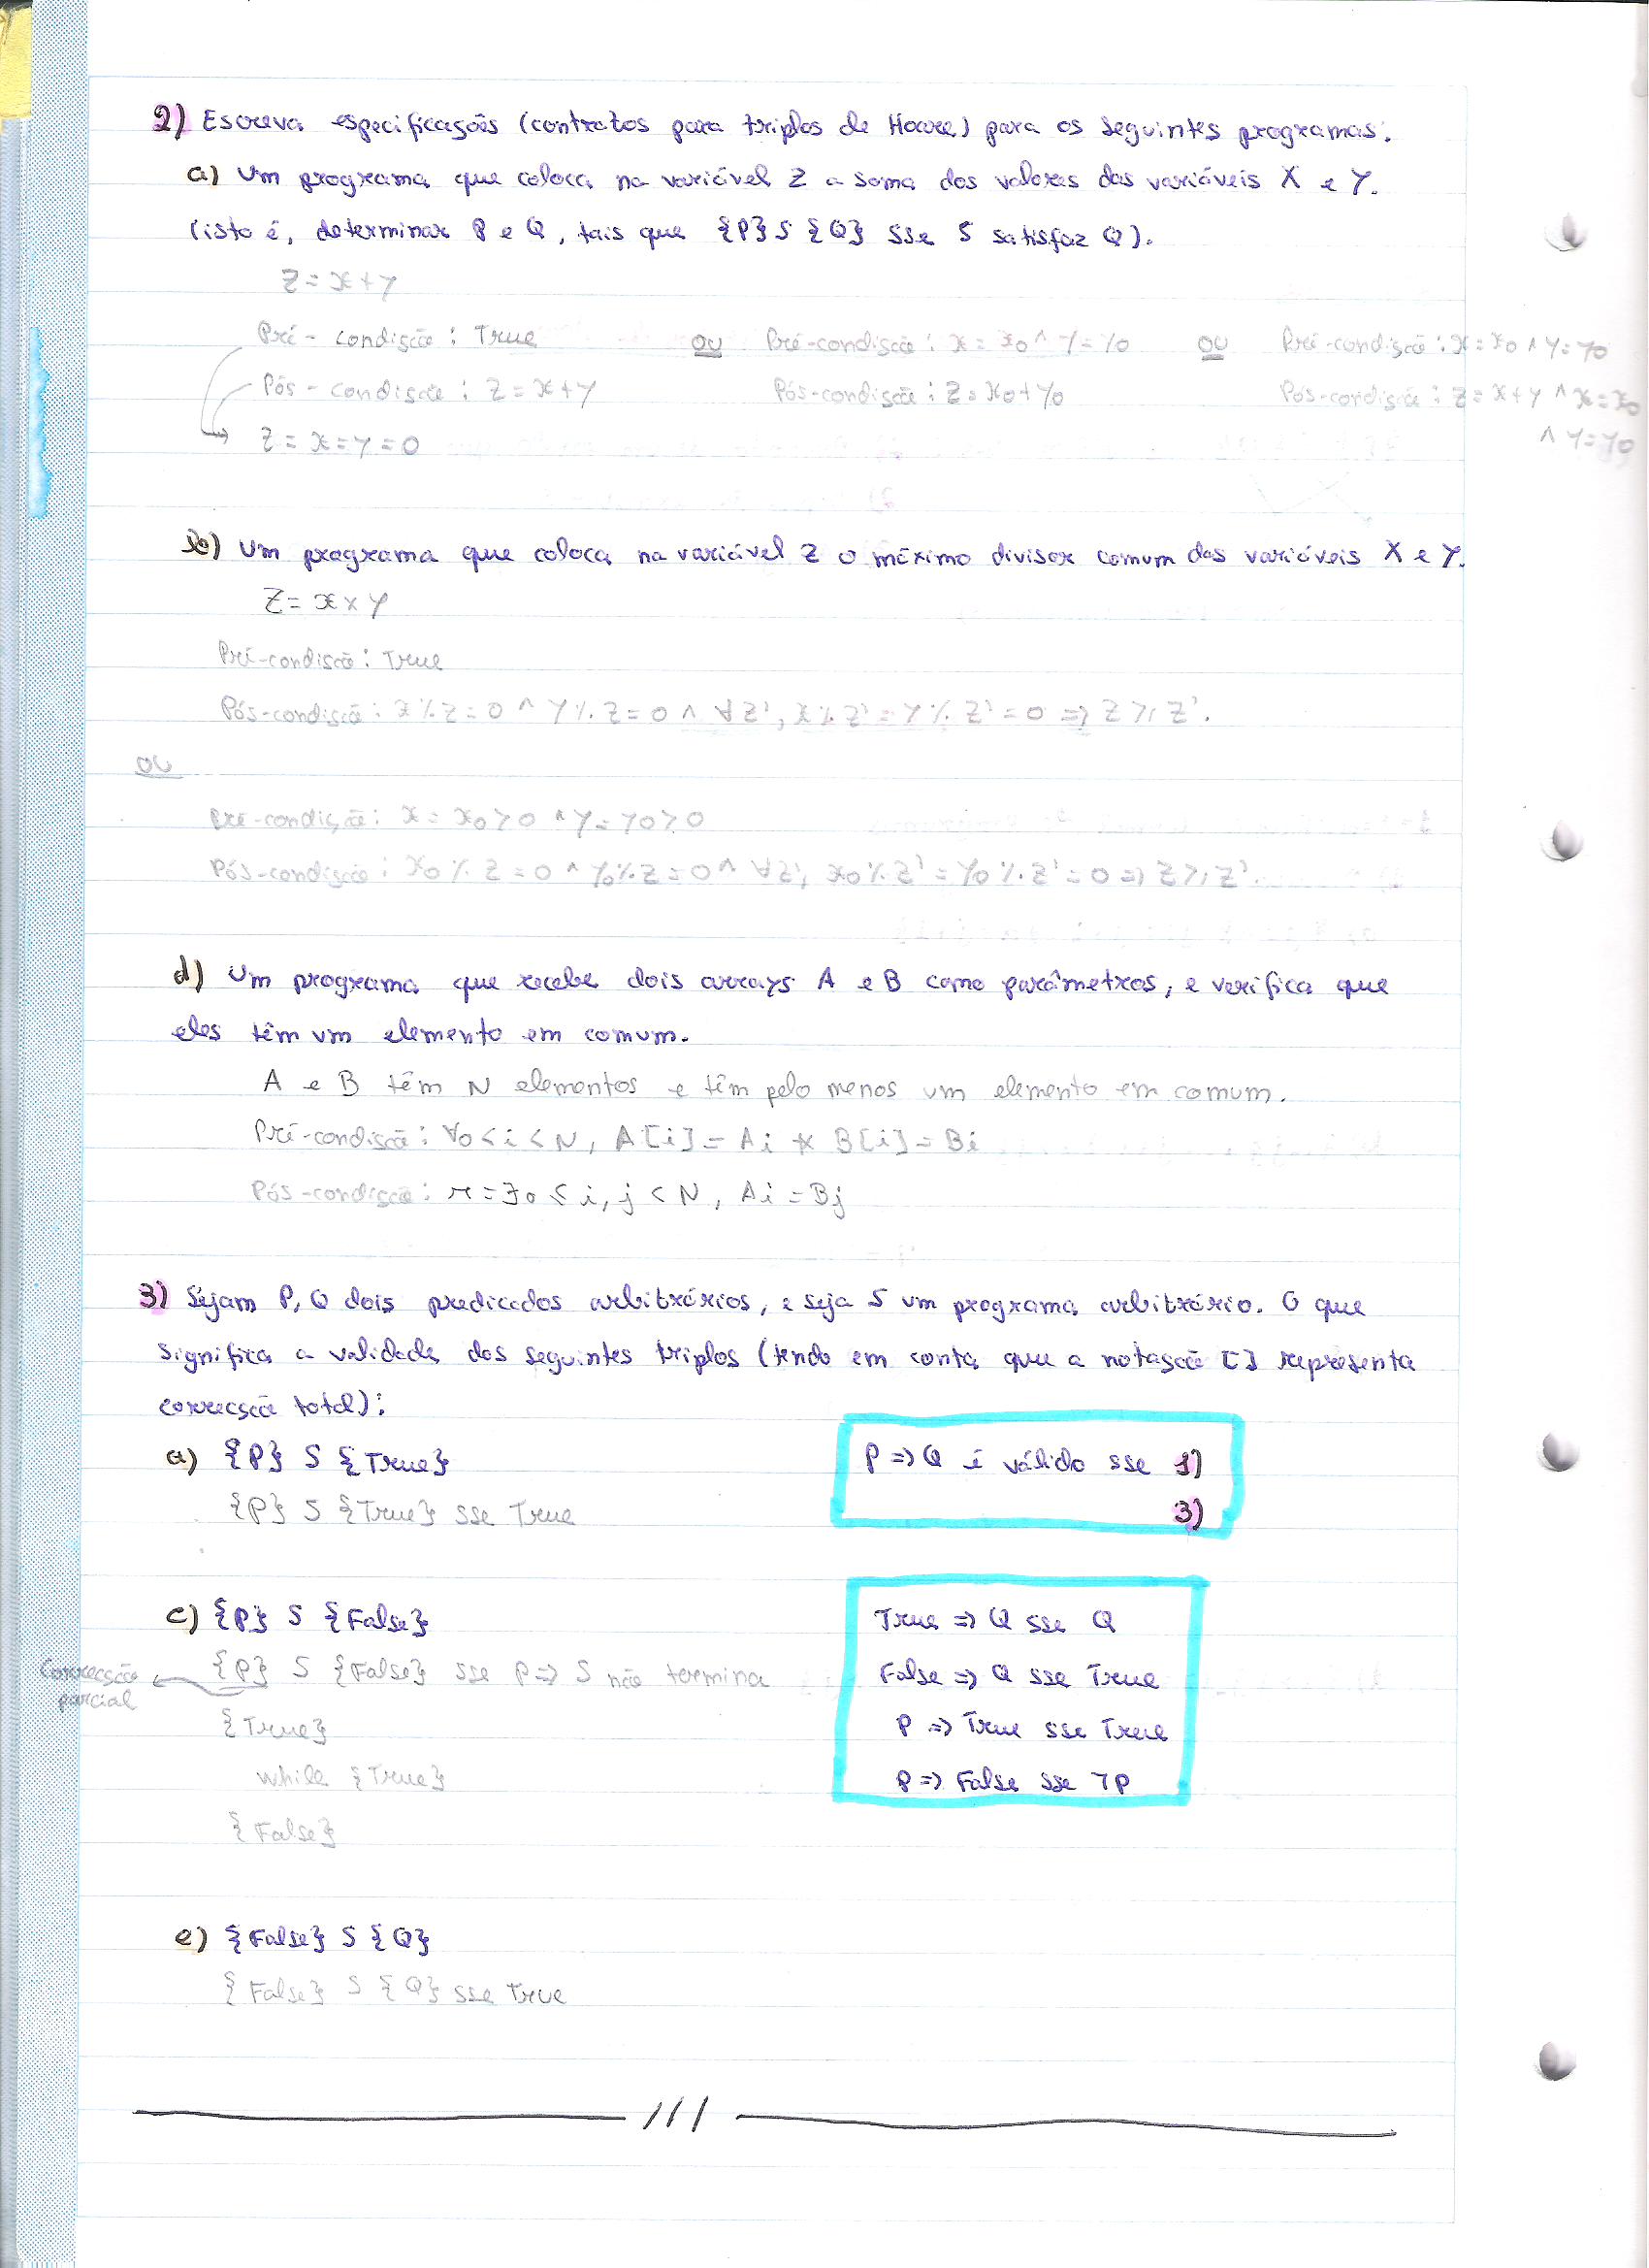 2) Escreva especificações (contratos para triplos de Hoare) para os seguintes programas:
a) Um programa que coloca na variável Z a soma dos valores das variáveis X e Y.
(isto é, determinar P e Q, tais que {P} S {Q} sse S satisfaz Q).
Z = x + y
Pré-condição: True ou Pré-condição: x = x0 ^ y = y0 ou Pré-condição: x = x0 ^ y = y0
Pós-condição: Z = x + y Pós-condição: Z = x0 + y0 Pós-condição: Z = x + y ^ x = x0
^ y = y0
Z = x = y = 0
b) Um programa que coloca na variável Z o máximo divisor comum das variáveis X e Y.
Z = x × y
Pré-condição: True
Pós-condição: x % Z = 0 ^ y % Z = 0 ^ ∀Z', x % Z' = y % Z' = 0 => Z >, Z'.
ou
Pré-condição: x = x0 > 0 ^ y = y0 > 0
Pós-condição: x0 % Z = 0 ^ y0 % Z = 0 ^ ∀Z', x0 % Z' = y0 % Z' = 0 => Z >, Z'.
d) Um programa que recebe dois arrays A e B como parâmetros, e verifica que
eles têm um elemento em comum.
A e B têm N elementos e têm pelo menos um elemento em comum.
Pré-condição: ∀0 < i < N, A[i] = Ai * B[i] = Bi
Pós-condição: r = ∃0 < i, j < N, Ai = Bj
3) Sejam P, Q dois predicados arbitrários, e seja S um programa arbitrário. O que
significa a validade dos seguintes triplos (tendo em conta que a notação [] representa
correcção total):
a) {P} S {True}
{P} S {True} sse True
P => Q é válido sse 1)
3)
c) {P} S {False}
{P} S {False} sse P => S não termina
Correcção
parcial
{True}
while {True}
{False}
True => Q sse Q
False => Q sse True
P => True sse True
P => False sse ¬P
e) {False} S {Q}
{False} S {Q} sse True